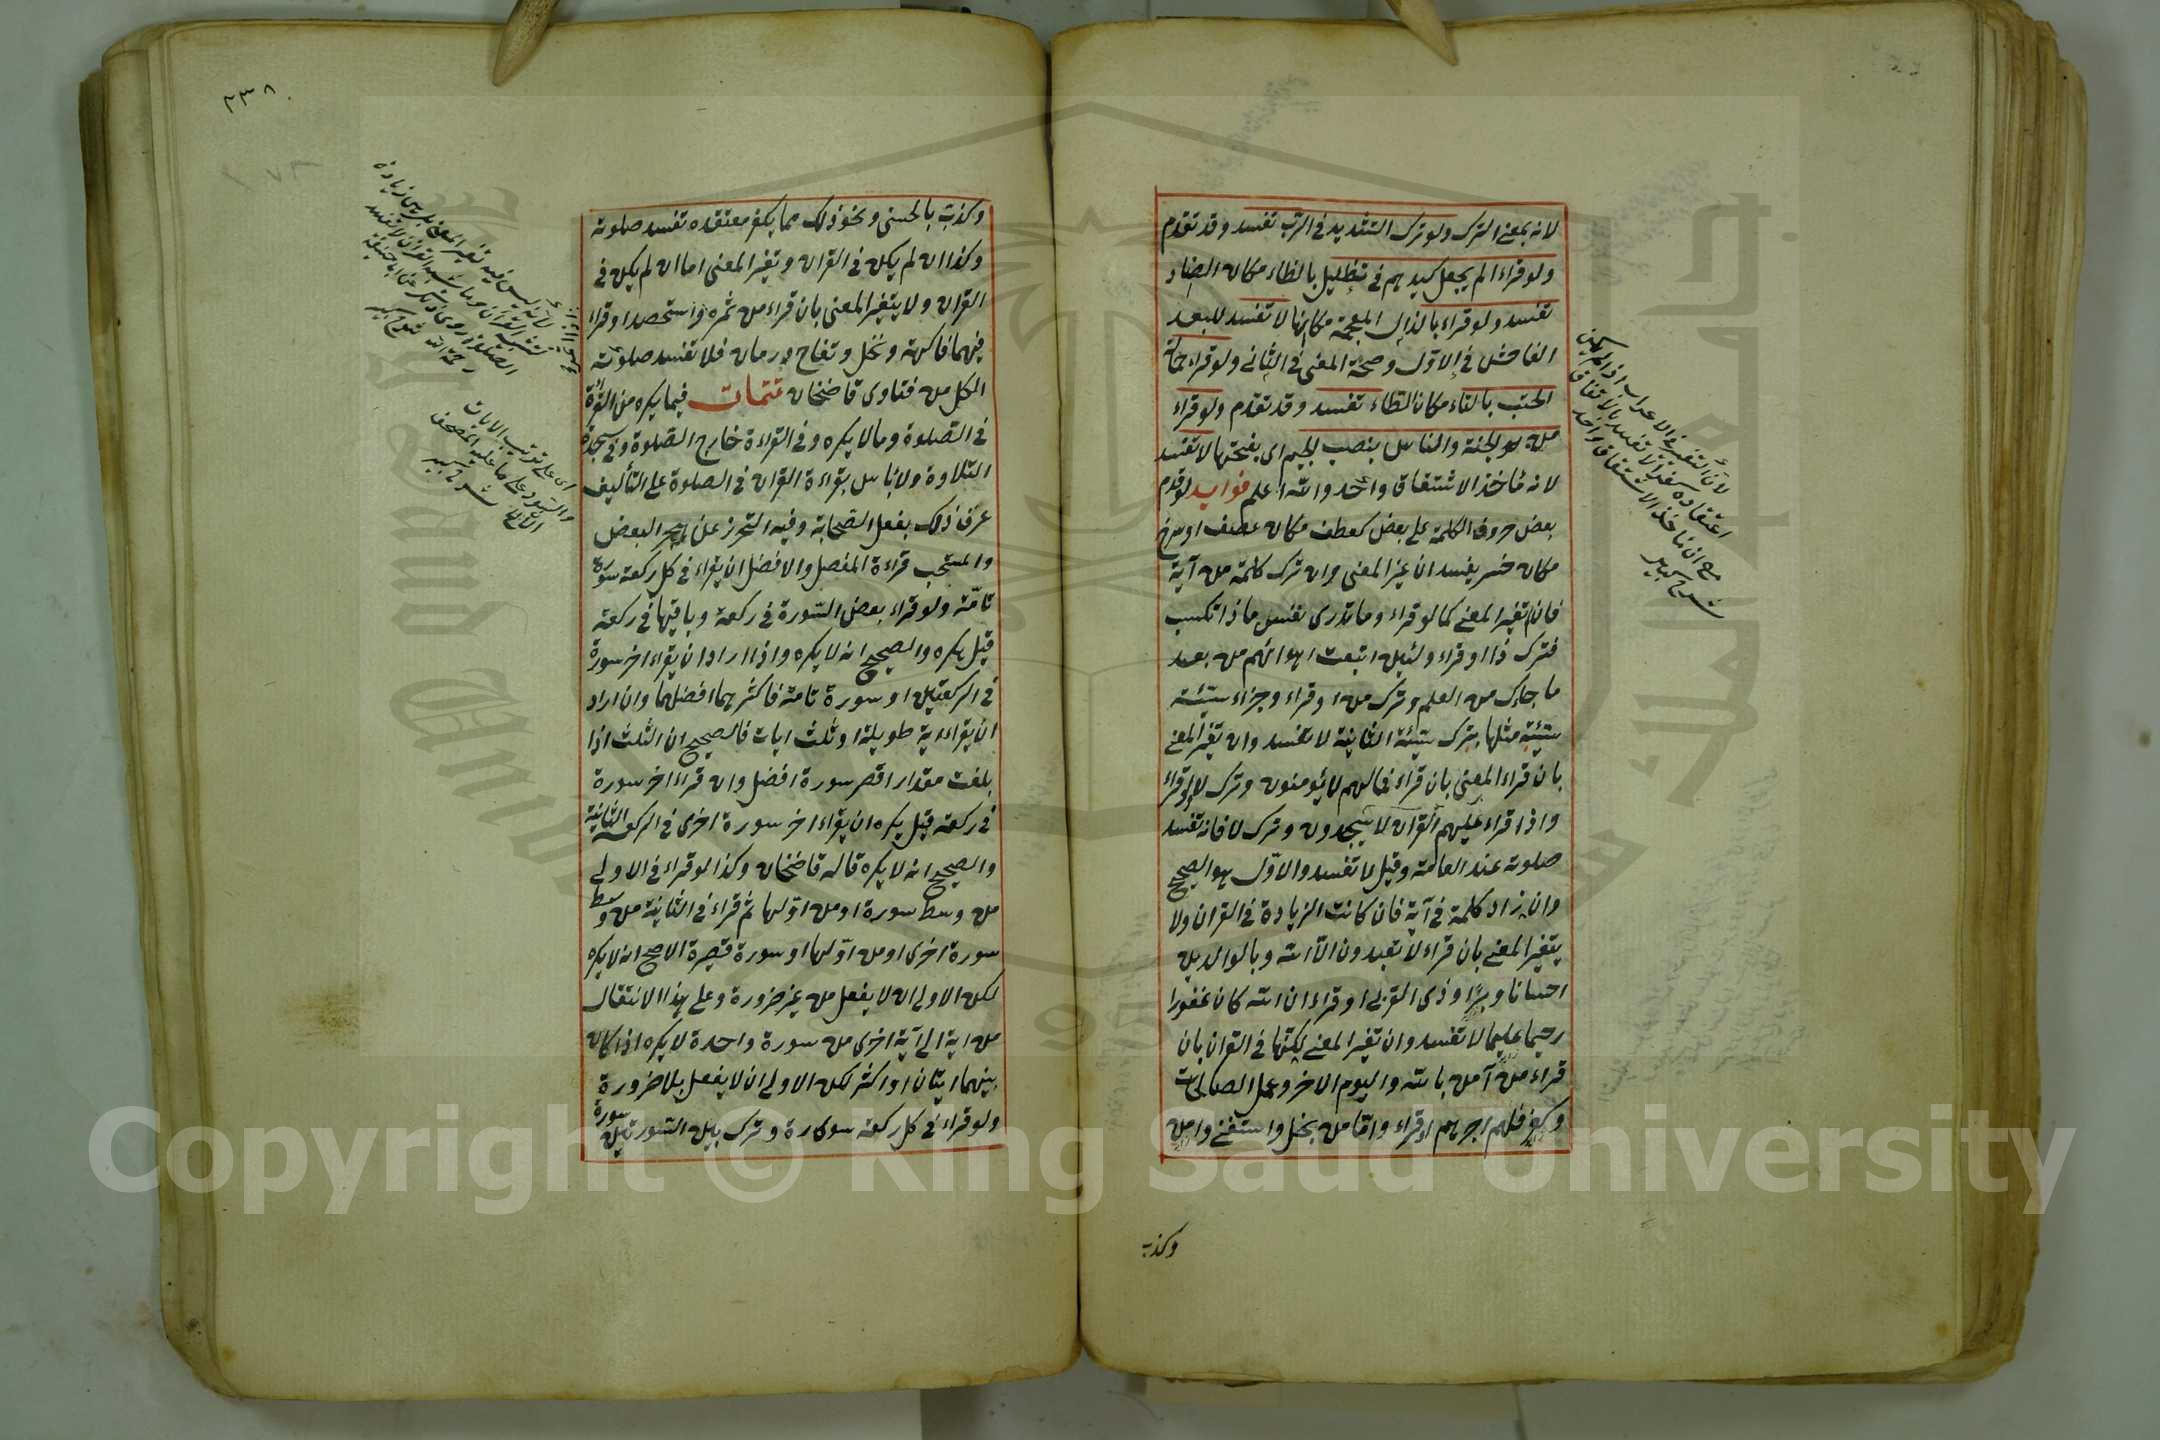 لانه بمعنى الترك ولو ترك التشديد في الرب تفسد وقد تقدم
ولو قراء الم يجعل كيدهم في تظليل بالظاء مكان الضاد
تفسد ولو قراء بالذال المعجمة مكانها لا تفسد للبعد
الفاحش في الاول وصحة المعنى في الثاني ولو قراء حمالة
الحتب بالتاء مكان الطاء تفسد وقد تقدم ولو قراء
من الجنة والناس بنصب الجيم اى بفتحتها لا تفسد
لانه مأخذ الاشتقاق واحد والله اعلم فوايد لو قدم
بعض حروف الكلمة على بعض كعطف مكان عصف او سرخ
مكان خسر يفسد ان غير المعنى وان ترك كلمة من آية
فان لم تغير المعنى كما لو قراء وما تدرى نفس ماذا تكسب
فترك ذا او قراء ولئن اتبعت اهوائهم من بعد
ما جاك من العلم وترك من او قراء وجزاء سيئة
سيئة مثلها بترك سيئة الثانية لا تفسد وان تغير المعنى
بان قراء المعنى بان قراء فمالهم لا يؤمنون وترك لا او قراء
واذا قراء عليهم القران لا يسجدون وترك لا فانه تفسد
صلوته عند العامة وقيل لا تفسد والاول هو الصحيح
وان زاد كلمة في آية فان كانت الزيادة في القران ولا
يتغير المعنى بان قراء لا تعبدون الا الله وبالوالدين
احسانا وبرا وذى القربى او قراء ان الله كان غفورا
رحيما عليما لا تفسد وان تغير المعنى لكنها في القران بان
قراء من آمن بالله واليوم الاخر وعمل الصالحات
وكفر فلهم اجرهم او قراء واما من بخل واستغنى وامن
وكذب
لان التغير في الاعراب اذا لم يكن
اعتقاده كفرا لا تفسد بالاتفاق
مع ان مأخذ الاشتقاق واحد
شرح كبير
٣٣٨
وكذب بالحسنى ونحو ذلك مما يكفر معتقده تفسد صلوته
وكذا ان لم يكن في القران وتغير المعنى اما ان لم يكن في
القران ولا يتغير المعنى بان قراء من ثمره واستحصد او قراء
فيهما فاكهة ونخل وتفاح ورمان فلا تفسد صلوته
الكل من فتاوى قاضخان تتمات فيما يكره من القرأة
في الصلوة وما لا يكره وفي القراءة خارج الصلوة وفي سجدة
التلاوة ولا بأس بقراءة القران في الصلوة على التأليف
عرف ذلك بفعل الصحابة وفيه التحرز عن هجر البعض
والمستحب قراءة المفصل والافضل ان يقراء في كل ركعة سورة
تامة ولو قراء بعض السورة في ركعة وباقيها في ركعة
قيل يكره والصحيح انه لا يكره واذا اراد ان يقراء اخر سورة
في الركعتين او سورة تامة فاكثرهما افضلهما وان اراد
ان يقراء اية طويلة او ثلث ايات فالصحيح ان الثلث اذا
بلغت مقدار اقصر سورة افضل وان قراء اخر سورة
في ركعة قيل يكره ان يقراء اخر سورة اخرى في الركعة الثانية
والصحيح انه لا يكره قاله قاضخان وكذا لو قراء في الاولى
من وسط سورة او من اولها ثم قراء في الثانية من وسط
سورة اخرى او من اولها او سورة قصيرة الاصح انه لا يكره
لكن الاولى ان لا يفعل من غير ضرورة وعلى هذا الانتقال
من اية الى آية اخرى من سورة واحدة لا يكره اذا كان
بينهما ايتان او اكثر لكن الاولى ان لا يفعل بلا ضرورة
ولو قراء في كل ركعة سورة وترك بين السورتين سورة
اى على ترتيب الايات
والسور على ما عليه المصحف
شرح كبير
Copyright © King Saud University